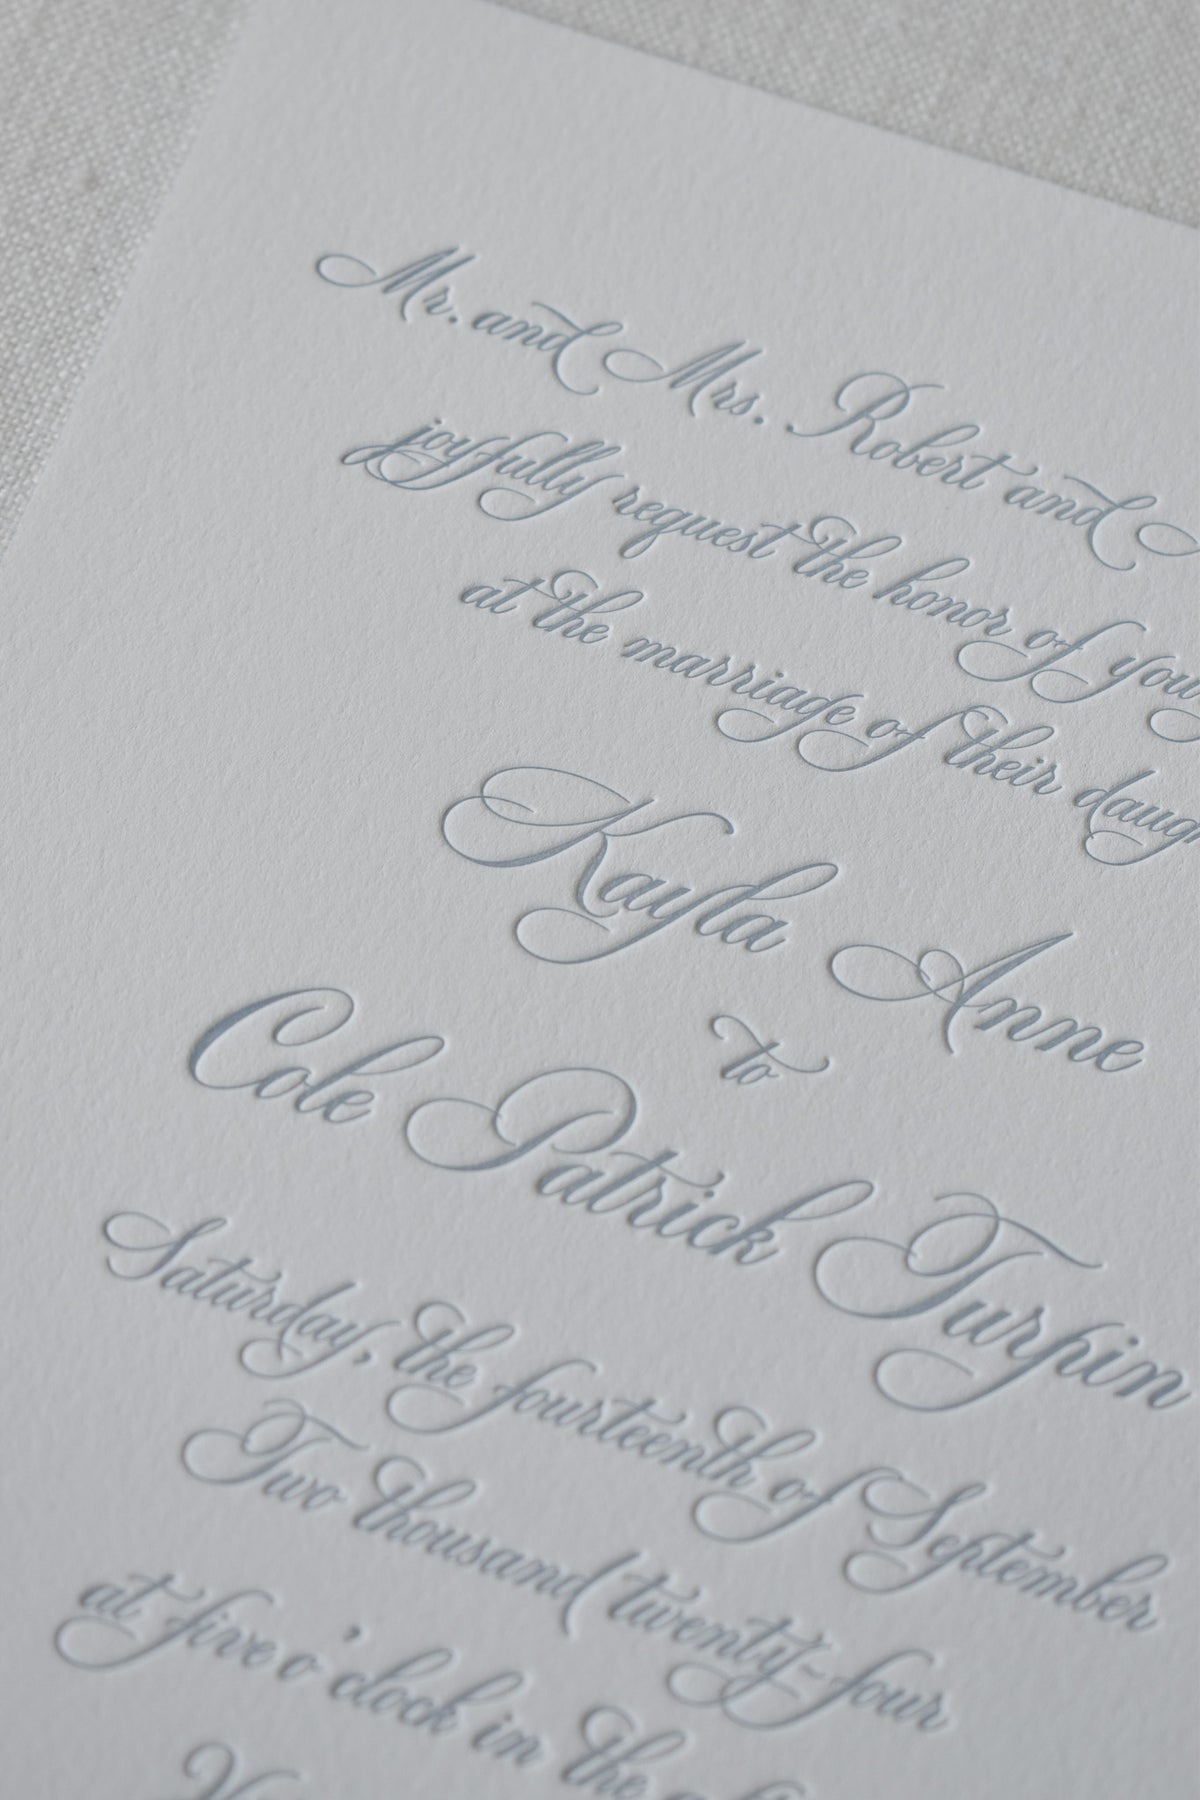 Mr. and Mrs. Robert and
joyfully request the honor of your
at the marriage of their
Kayla Anne
to
Cole Patrick Turpin
Saturday, the fourteenth of September
Two thousand twenty-four
at five o'clock in the